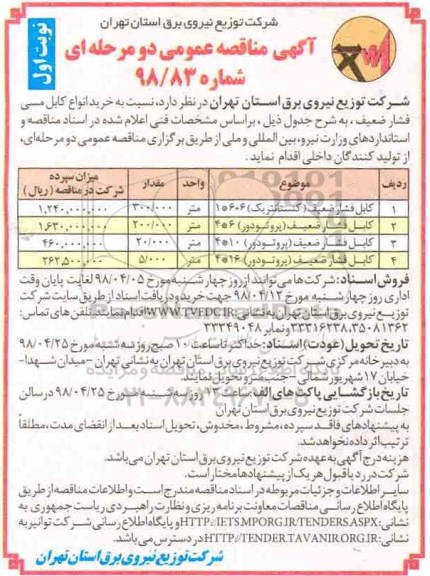 شرکت توزیع نیروی برق استان تهران
نوبت اول
آگهی مناقصه عمومی دو مرحله ای
شماره ۹۸/۸۳
شرکت توزیع نیروی برق استان تهران در نظر دارد، نسبت به خرید انواع کابل مسی
فشار ضعیف ، به شرح جدول ذیل ، براساس مشخصات فنی اعلام شده در اسناد مناقصه و
استانداردهای وزارت نیرو، بین المللی و ملی از طریق برگزاری مناقصه عمومی دو مرحله‌ای،
از تولید کنندگان داخلی اقدام نماید .
ردیف موضوع واحد مقدار میزان سپرده شرکت در مناقصه (ریال)
۱ کابل فشار ضعیف (کنسانتریک) ۶+۶*۱ متر ۳۰۰/۰۰۰ ۱,۲۴۰,۰۰۰,۰۰۰
۲ کابل فشار ضعیف (پروتودور) ۶*۴ متر ۲۰۰/۰۰۰ ۱,۶۳۰,۰۰۰,۰۰۰
۳ کابل فشار ضعیف (پروتودور) ۱۰*۴ متر ۲۰/۰۰۰ ۴۶۰,۰۰۰,۰۰۰
۴ کابل فشار ضعیف (پروتودور) ۱۶*۴ متر ۵/۰۰۰ ۲۶۲,۵۰۰,۰۰۰
فروش اسناد: شرکت‌ها می‌توانند از روز چهارشنبه مورخ ۹۸/۰۴/۰۵ لغایت پایان وقت
اداری روز چهارشنبه مورخ ۹۸/۰۴/۱۲ جهت خرید و دریافت اسناد از طریق سایت شرکت
توزیع نیروی برق استان تهران به نشانی WWW.TVEDC.IR اقدام نمایند. تلفن های تماس:
۳۳۳۱۶۲۳۸،۳۵۰۸۱۳۶۲ و نمابر ۳۳۳۴۹۰۴۸
تاریخ تحویل (عودت) اسناد: حداکثر تا ساعت ۱۰ صبح روز سه شنبه مورخ ۹۸/۰۴/۲۵
به دبیرخانه مرکزی شرکت توزیع نیروی برق استان تهران به نشانی تهران -میدان شهدا-
خیابان ۱۷ شهریور شمالی -جنب مترو تحویل نمایند.
تاریخ بازگشایی پاکت های الف روز سه شنبه مورخ ۹۸/۰۴/۲۵ در سالن
جلسات شرکت توزیع نیروی برق استان تهران
به پیشنهادهای فاقد سپرده، مشروط، مخدوش، تحویل اسناد بعد از انقضای مدت، مطلقاً
ترتیب اثر داده نخواهد شد.
هزینه درج آگهی به عهده شرکت توزیع نیروی برق استان تهران می‌باشد.
شرکت در رد یا قبول هر یک از پیشنهادها مختار است.
سایر اطلاعات و جزئیات مربوطه در اسناد مناقصه مندرج است و اطلاعات مناقصه از طریق
پایگاه اطلاع رسانی مناقصات معاونت برنامه ریزی و نظارت راهبردی ریاست جمهوری به
نشانی: HTTP://IETS.MPORG.IR/TENDERS.ASPX و پایگاه اطلاع رسانی شرکت توانیر به
نشانی: HTTP://TENDER.TAVANIR.ORG.IR در دسترس می باشد.
شرکت توزیع نیروی برق استان تهران